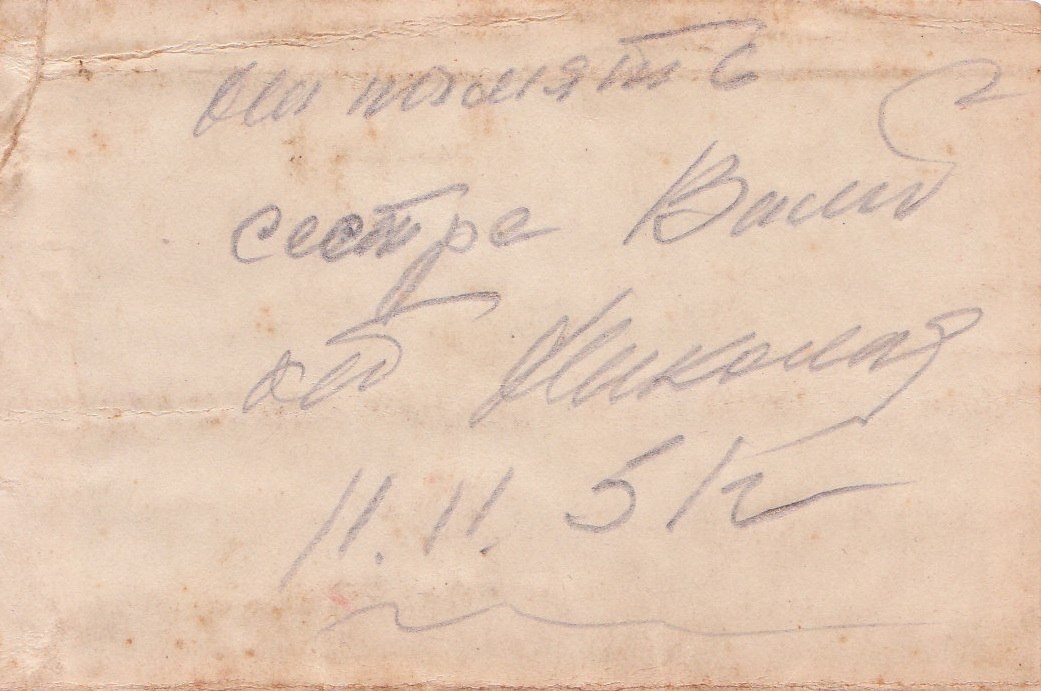 на помять
сестре Вали
от Николая
11.11.51 г